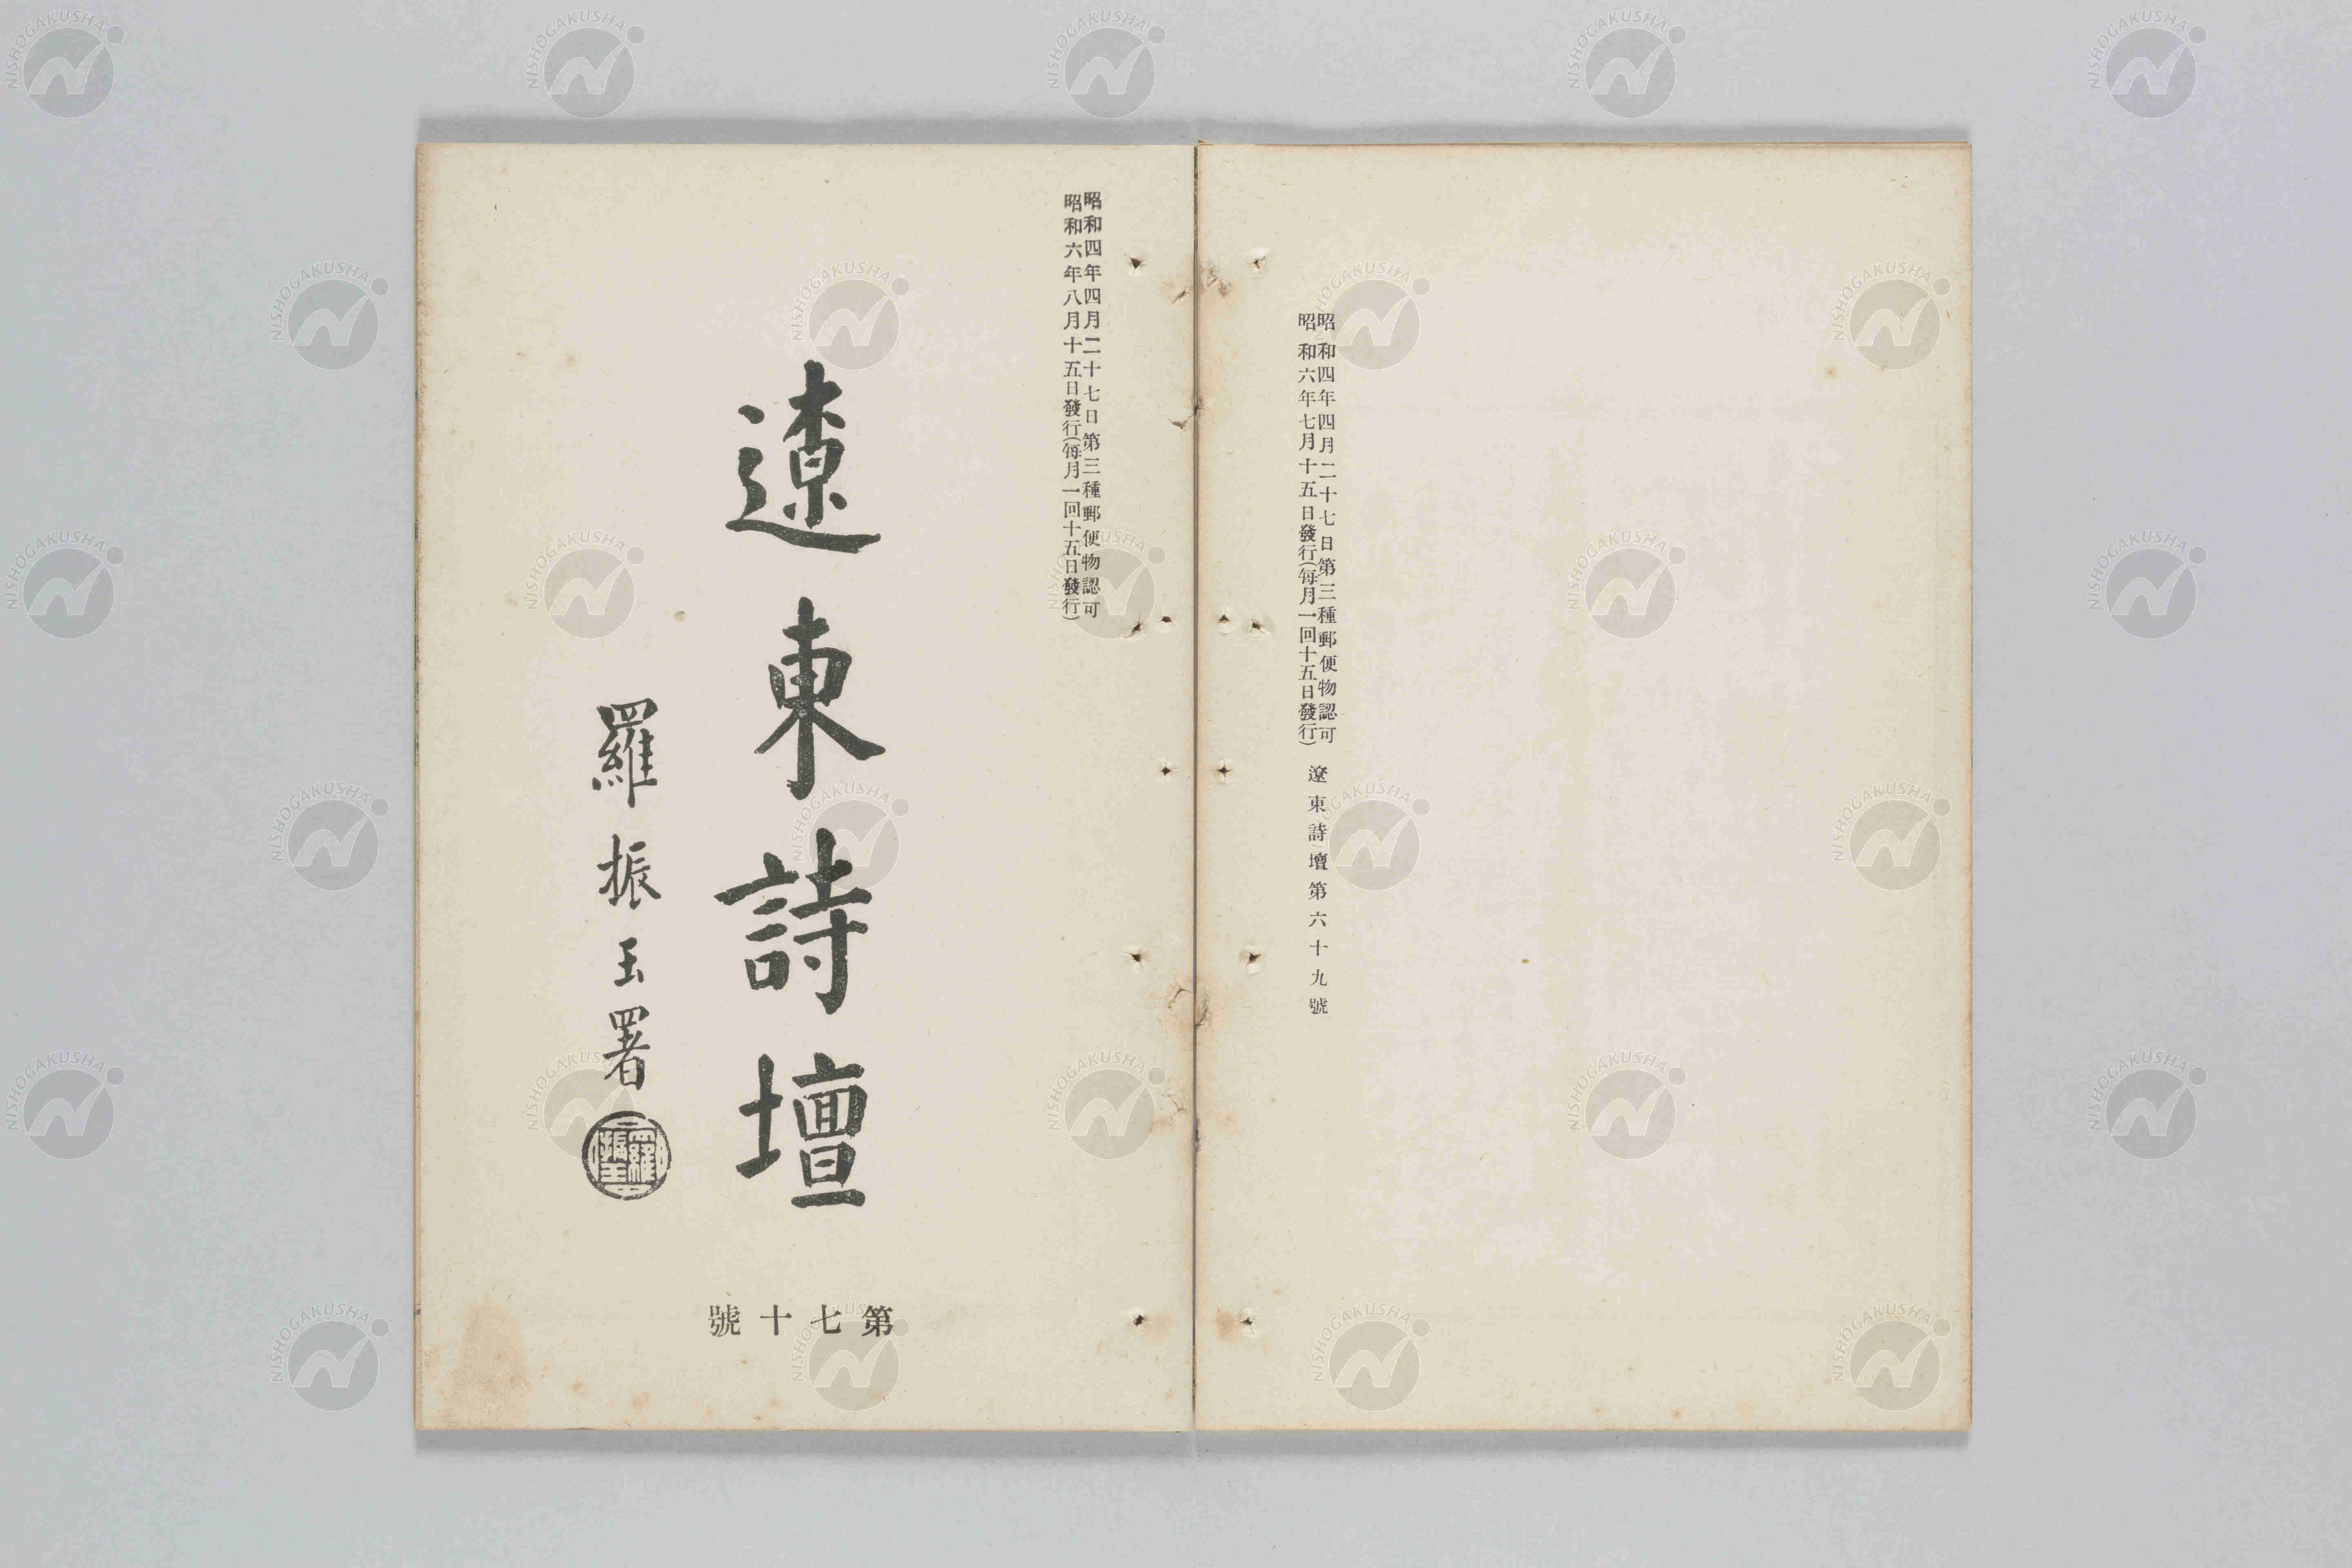 昭和四年四月二十七日第三種郵便物認可
昭和六年七月十五日發行(每月一回十五日發行)
遼東詩壇第六十九號
昭和四年四月二十七日第三種郵便物認可
昭和六年八月十五日發行(每月一回十五日發行)
遼東詩壇
羅振玉署
羅振玉
第七十號
NISHOGAKUSHA